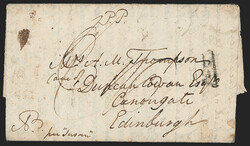 P.P.
Mrs A. M. Thompson
care of
Duncan Cowan Esqr
Canongate
Edinburgh